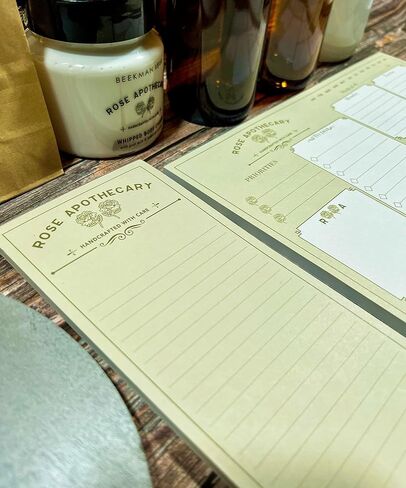 BEEKMAN
ROSE APOTHECARY
WHIPPED BODY
ROSE APOTHECARY
HANDCRAFTED WITH CARE
ROSE APOTHECARY
PRIORITIES
R A